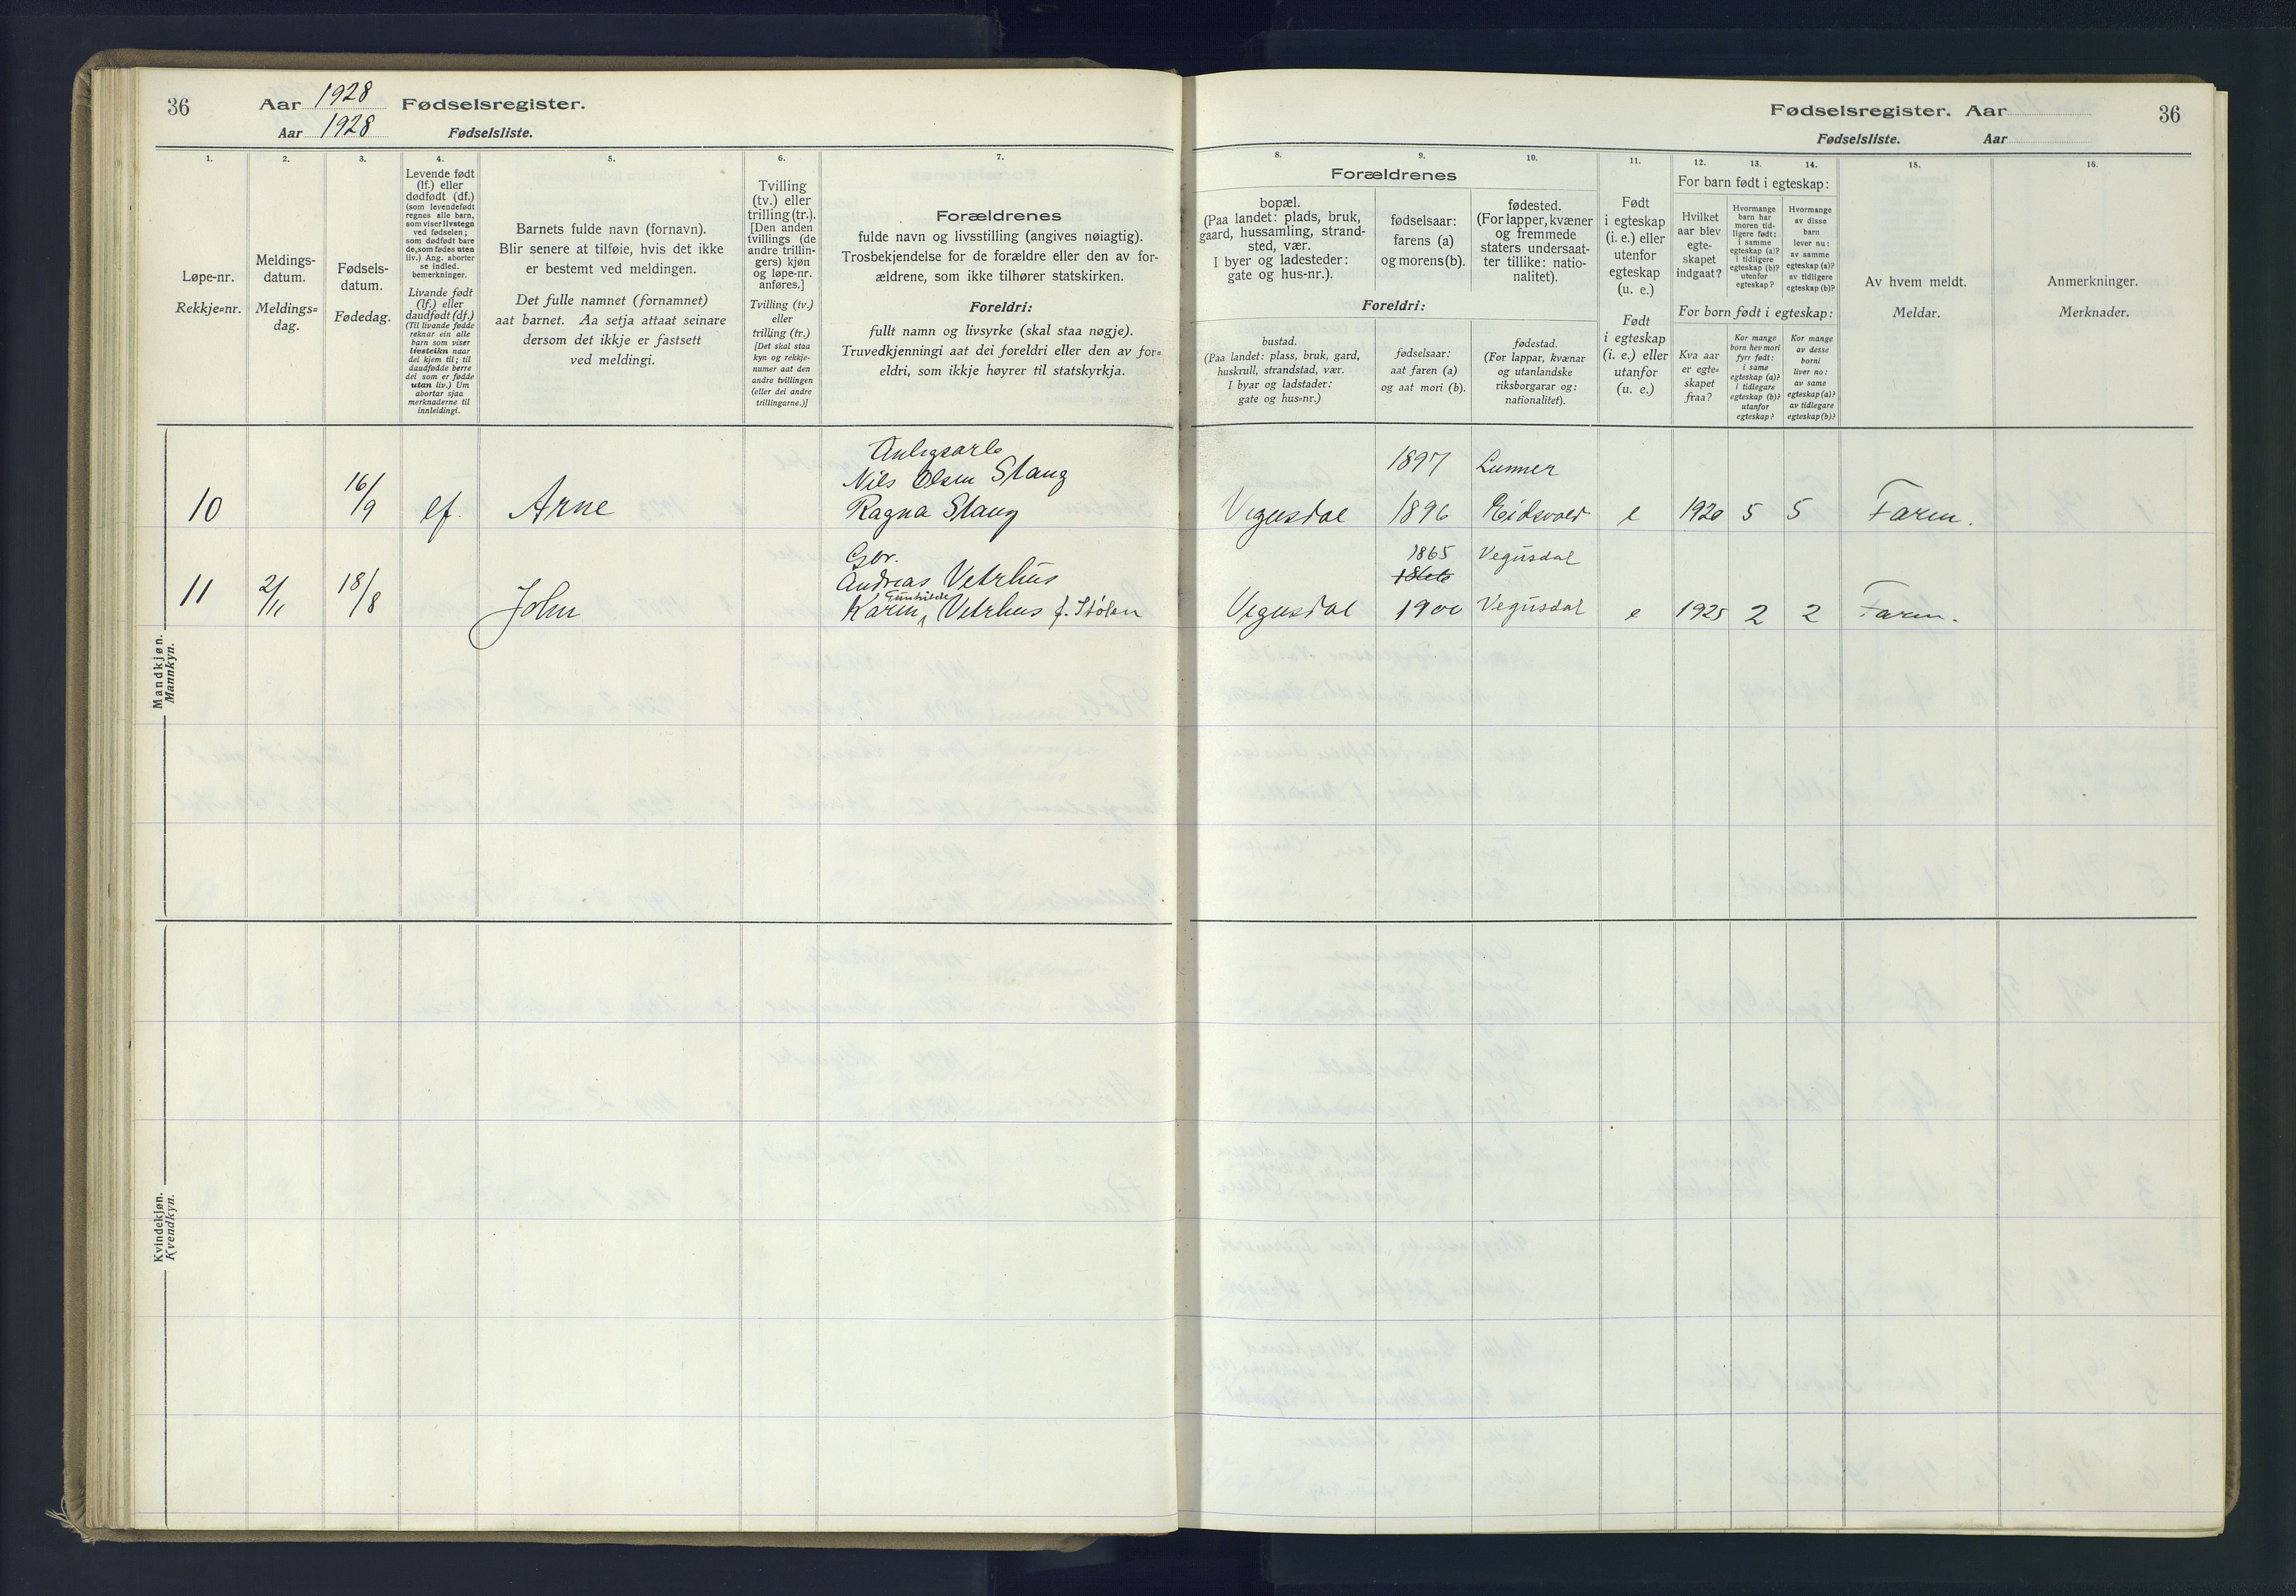 36
Aar 1928 Fødselsregister.
Aar 1928 Fødselsliste.
1.
2.
3.
4.
5.
6.
7.
Løpe-nr.
Rekkje=nr.
Meldings-
datum.
Meldings=
dag.
Fødsels-
datum.
Fødedag.
Levende født
(lf.) eller
dødfødt (df.)
(som levendefødt
regnes alle barn,
som viser livstegn
ved fødselen;
som dødfødt bare
de, som fødes uten
liv.) Ang. aborter
se indled.
bemerkninger.
Livande født
(lf.) eller
daudfødt (df.)
(Til livande fødde
reknar ein alle
barn som viser
livsteikn naar
dei kjem til; til
daudfødde berre
dei som er fødde
utan liv.) Um
abortar sjaa
merknaderne til
innleidingi.
Barnets fulde navn (fornavn).
Blir senere at tilføie, hvis det ikke
er bestemt ved meldingen.
Det fulle namnet (fornamnet)
aat barnet. Aa setja attaat seinare
dersom det ikkje er fastsett
ved meldingi.
Tvilling
(tv.) eller
trilling (tr.).
[Den anden
tvillings (de
andre trillin-
gers) kjøn
og løpe-nr.
anføres.]
Tvilling (tv.)
eller
trilling (tr.)
[Det skal staa
kyn og rekkje-
numer aat den
andre tvillingen
(eller dei andre
trillingarne.)]
Forældrenes
fulde navn og livsstilling (angives nøiagtig).
Trosbekjendelse for de forældre eller den av for-
ældrene, som ikke tilhører statskirken.
Foreldri:
fullt namn og livsyrke (skal staa nøgje).
Truvedkjenningi aat dei foreldri eller den av for=
eldri, som ikkje høyrer til statskyrkja.
Mandkjøn.
Mannkyn.
10
16/9
lf.
Arne
Anlegsarb
Nils Olsen Stang
Ragna Stang
11
2/11
18/8
John
Gbr.
Andreas Vetrhus
Gunhilde
Karin, Vetrhus f. Stølen
Kvindekjøn.
Kvendkyn.
Fødselsregister. Aar
36
Fødselsliste. Aar
8.
9.
10.
11.
12.
13.
14.
15.
16.
Forældrenes
bopæl.
(Paa landet: plads, bruk,
gaard, hussamling, strand-
sted, vær.
I byer og ladesteder:
gate og hus-nr.).
fødselsaar:
farens (a)
og morens (b).
fødested.
(For lapper, kvæner
og fremmede
staters undersaat-
ter tillike: natio-
nalitet).
Foreldri:
bustad.
(Paa landet: plass, bruk, gard,
huskrull, strandstad, vær.
I byar og ladstader:
gate og hus=nr.)
fødselsaar:
aat faren (a)
og aat mori (b).
fødestad.
(For lappar, kvænar
og utanlandske
riksborgarar og:
nationalitet).
Født
i egteskap
(i. e.) eller
utenfor
egteskap
(u. e.)
Født
i egteskap
(i. e.) eller
utanfor
(u. e.)
For barn født i egteskap:
Hvilket
aar blev
egte-
skapet
indgaat?
Hvormange
barn har
moren tid-
ligere født:
i samme
egteskap (a)?
i tidligere
egteskap (b)?
utenfor
egteskap?
Hvormange
av disse
barn
lever nu:
av samme
egteskap (a)?
av tidligere
egteskap (b)?
For born født i egteskap:
Kva aar
er egte=
skapet
fraa?
Kor mange
born hev mori
fyrr født:
i same
egteskap (a)?
i tidlegare
egteskap (b)?
utanfor
egteskap?
Kor mange
av desse
borni
liver no:
av same
egteskap (a)?
av tidlegare
egteskap (b)?
Av hvem meldt.
Meldar.
Anmerkninger.
Merknader.
1897 Lunner
Vegusdal 1896 Eidsvold e 1920 5 5 Faren.
1865 Vegusdal
Vegusdal 1900 Vegusdal e 1925 2 2 Faren.